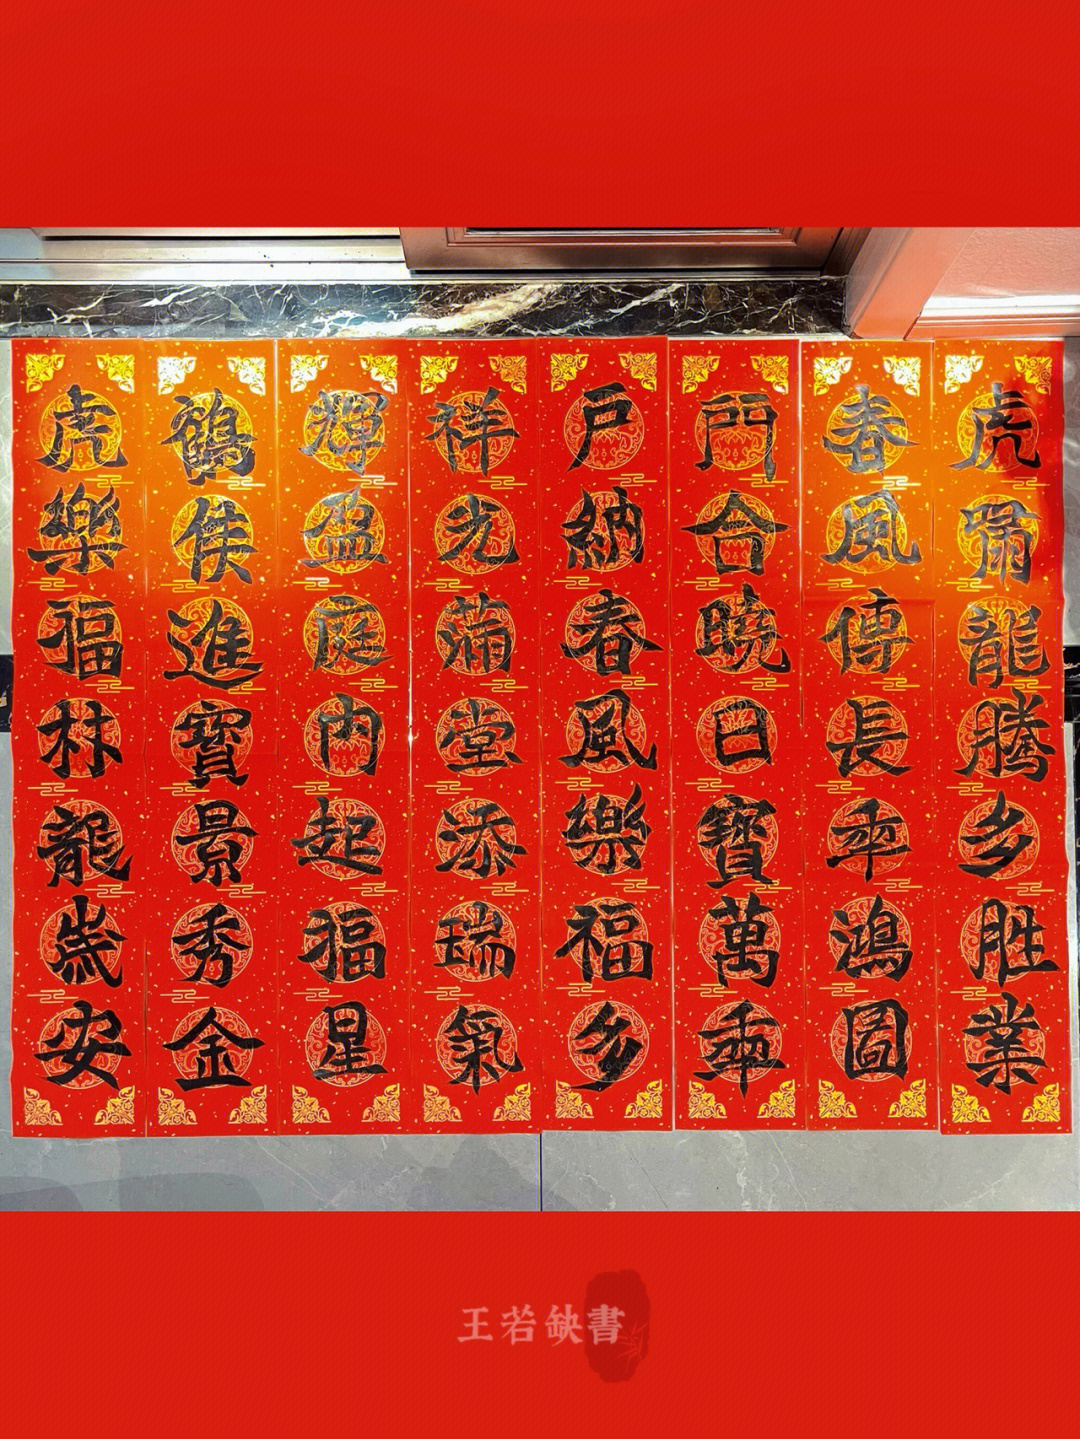 虎嘯龍騰多胜業
春風傳長年鴻圖
門合曉日寶萬年
戶納春風樂福多
祥光滿堂添瑞氣
輝盈庭内起福星
鶴侯進寶景秀金
虎樂福林龍歲安
王若缺書